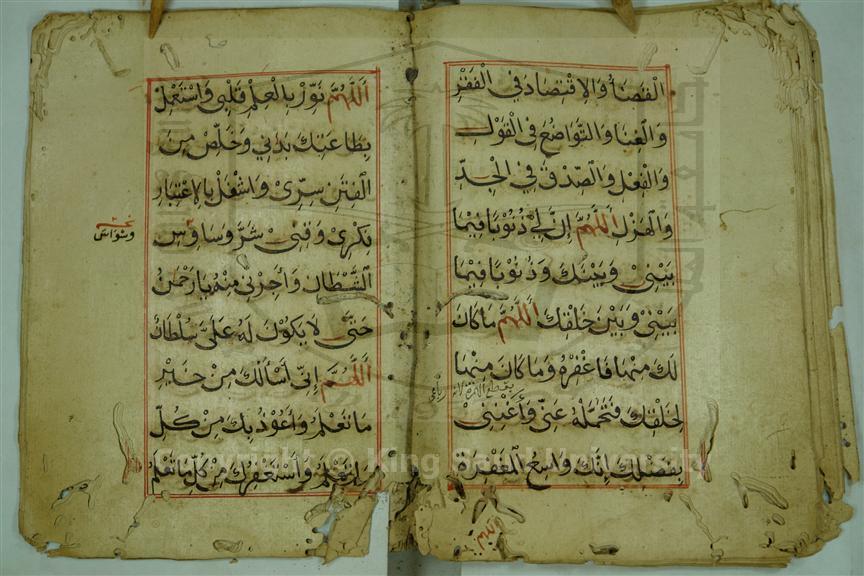 الْقَصْدَ وَالْاِقْتِصَادَ فِي الْفَقْرِ
وَالْغِنَا وَالتَّوَاضُعَ فِي الْقَوْلِ
وَالْفِعْلِ وَالصِّدْقَ فِي الْجِدِّ
وَالْهَزْلِ اَللّٰهُمَّ إِنَّ لِي ذُنُوْبًا فِيْمَا
بَيْنِيْ وَبَيْنَكَ وَذُنُوْبًا فِيْمَا
بَيْنِيْ وَبَيْنَ خَلْقِكَ اَللّٰهُمَّ مَا كَانَ
لَكَ مِنْهَا فَاغْفِرْهُ وَمَا كَانَ مِنْهَا
لِخَلْقِكَ فَتَحَمَّلْهُ عَنِّيْ وَأَغْنِنِيْ
بِفَضْلِكَ إِنَّكَ وَاسِعُ الْمَغْفِرَةِ
اللهم
اَللّٰهُمَّ نَوِّرْ بِالْعِلْمِ قَلْبِيْ وَاسْتَعْمِلْ
بِطَاعَتِكَ بَدَنِيْ وَخَلِّصْ مِنَ
الْفِتَنِ سِرِّيْ وَاشْغَلْ بِالْاِعْتِبَارِ
فِكْرِيْ وَقِنِيْ شَرَّ وَسَاوِسِ
الشَّيْطَانِ وَأَجِرْنِيْ مِنْهُ يَا رَحْمٰنُ
حَتّٰى لَا يَكُوْنَ لَهُ عَلَيَّ سُلْطَانٌ
اَللّٰهُمَّ إِنِّيْ أَسْأَلُكَ مِنْ خَيْرِ
مَا تَعْلَمُ وَأَعُوْذُ بِكَ مِنْ كُلِّ
تَعْلَمُ وَأَسْتَغْفِرُكَ مِنْ كُلِّ مَا تَعْلَمُ
وسواس
Copyright © King Saud University